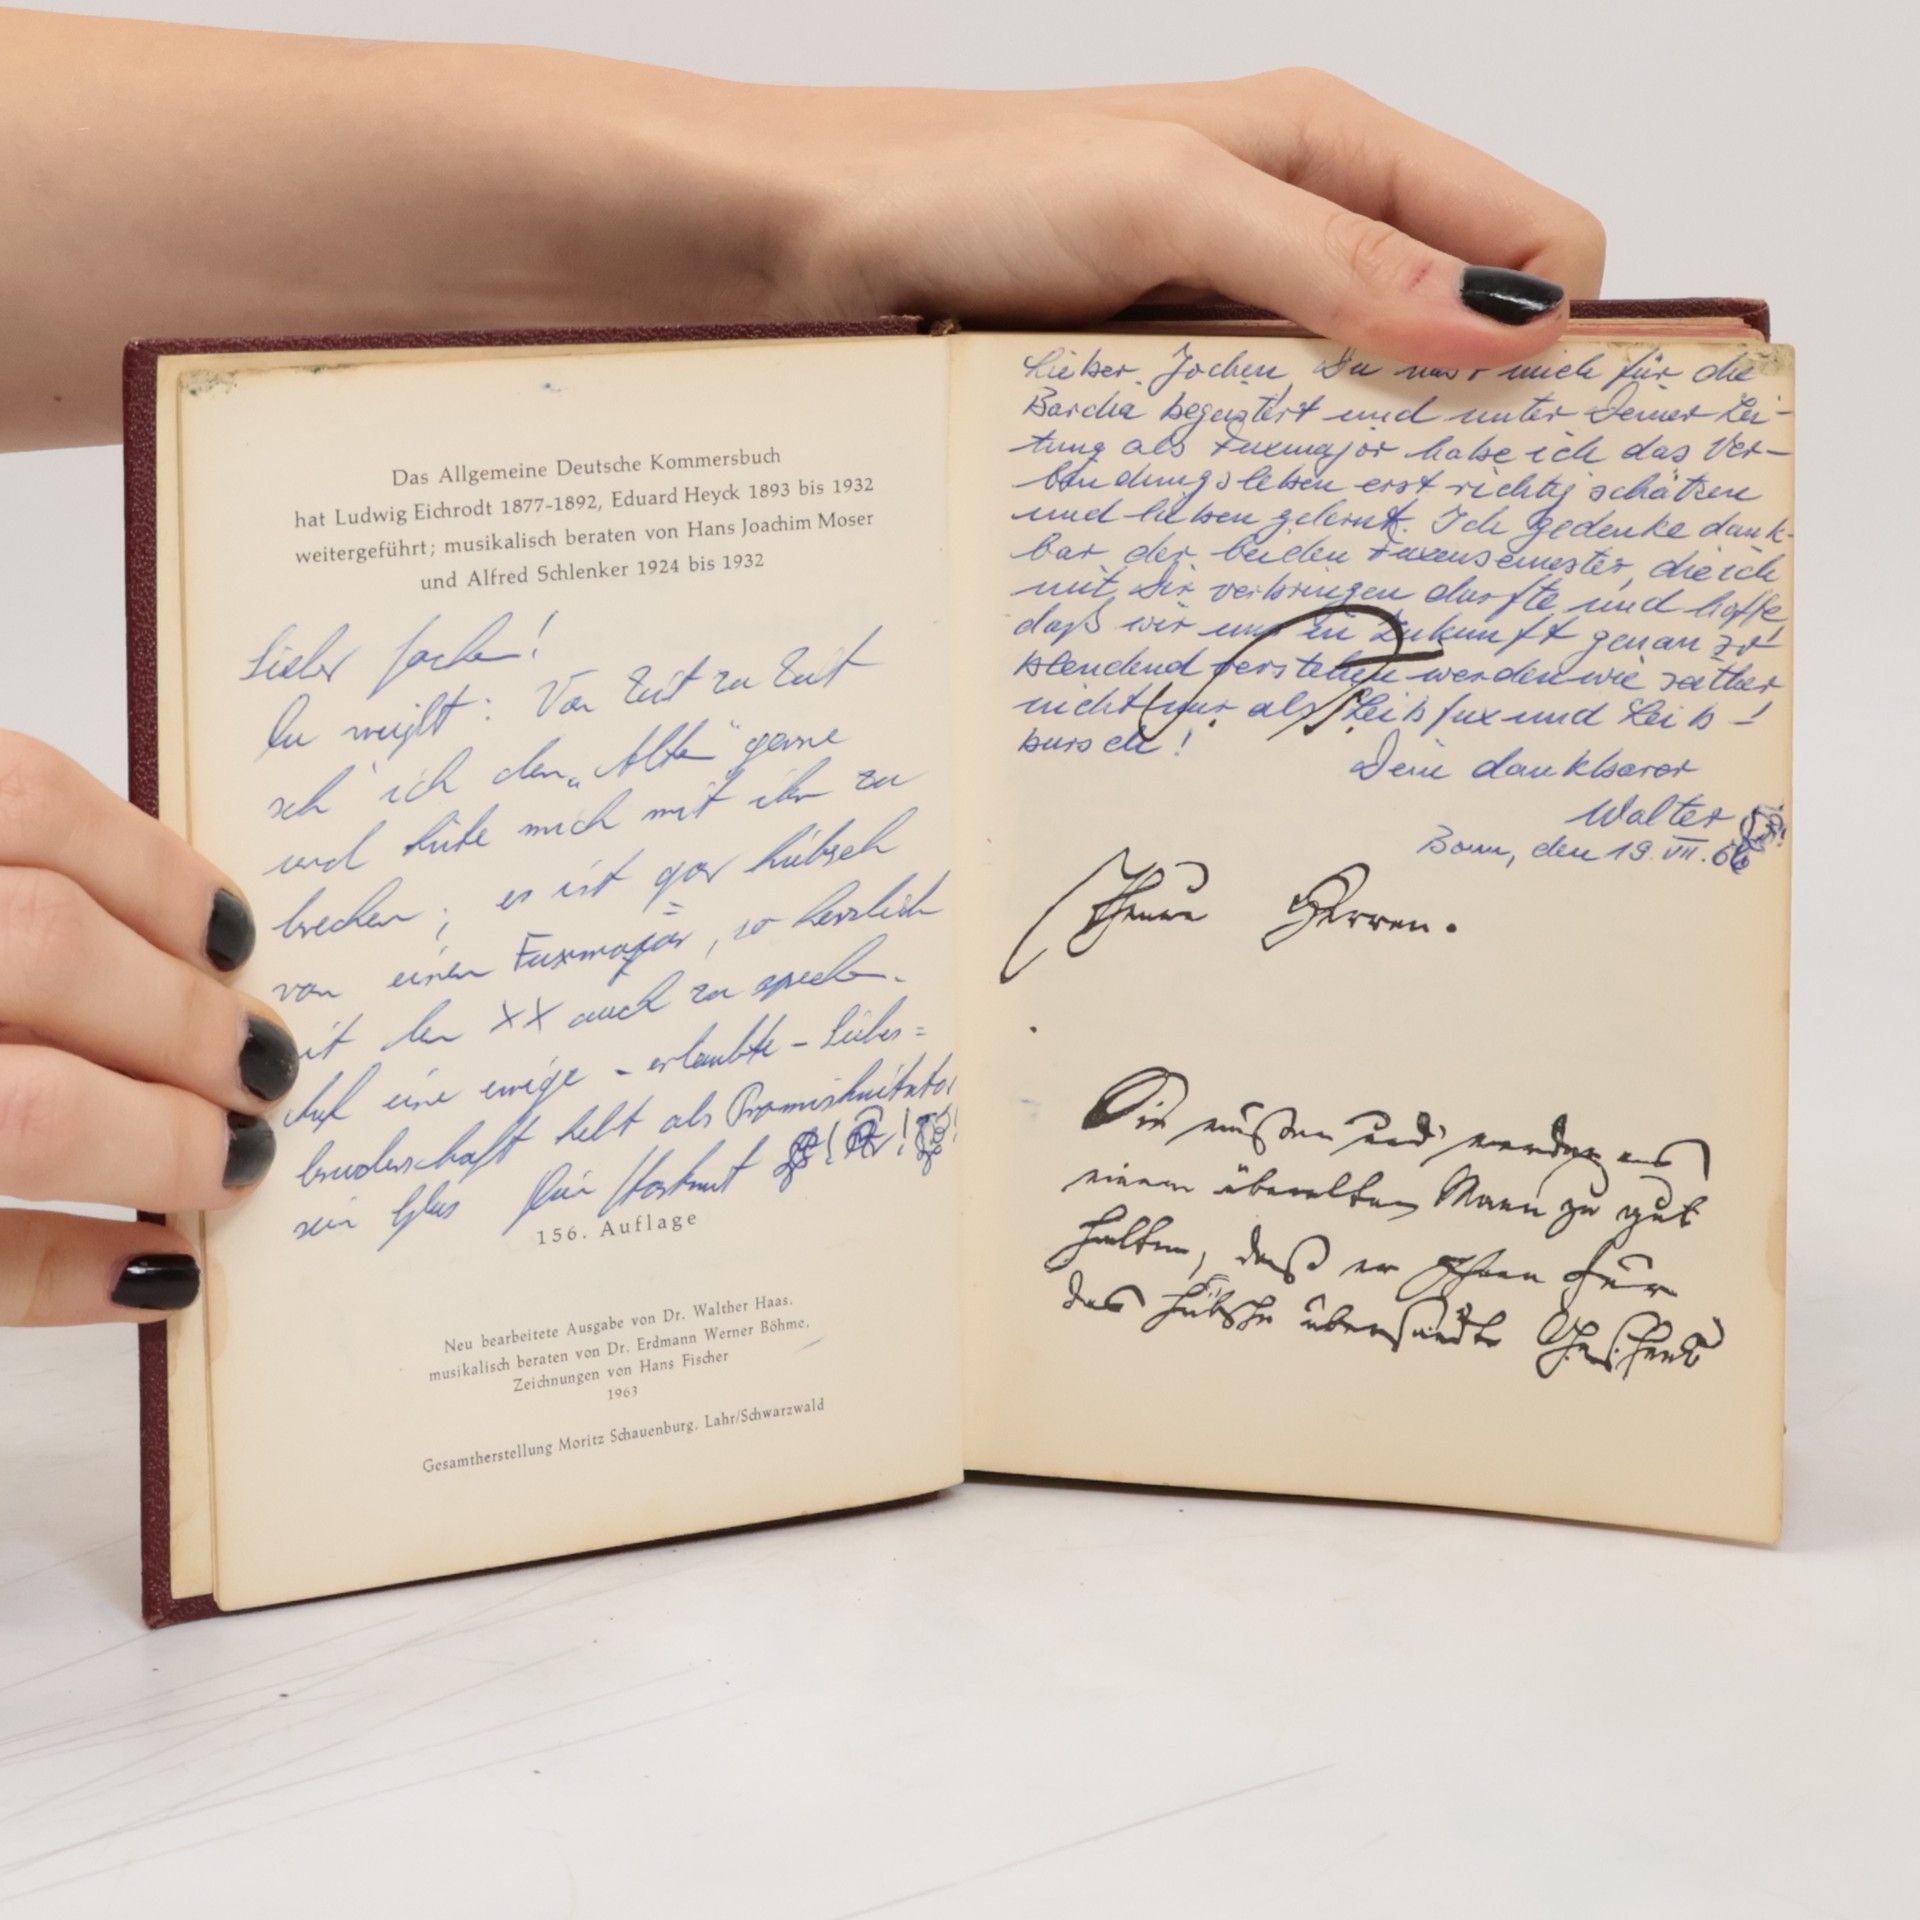 Das Allgemeine Deutsche Kommersbuch
hat Ludwig Eichrodt 1877-1892, Eduard Heyck 1893 bis 1932
weitergeführt; musikalisch beraten von Hans Joachim Moser
und Alfred Schlenker 1924 bis 1932
Lieber Jochen!
Du weißt: Von Zeit zu Zeit
seh' ich den „Alten" gerne
und hüte mich mit ihm zu
brechen; es ist gar hübsch
von einem Fuxmajor, so herzlich
mit den XX auch zu sprechen.
Auf eine ewige - erlaubte - Liebes=
bruderschaft hebt als
sein Glas Dein Hartmut
156. Auflage
Neu bearbeitete Ausgabe von Dr. Walther Haas,
musikalisch beraten von Dr. Erdmann Werner Böhme,
Zeichnungen von Hans Fischer
1963
Gesamtherstellung Moritz Schauenburg, Lahr/Schwarzwald
Lieber Jochen, Du hast mich für die
begeistert und unter Deiner Lei-
tung als Fuxmajor habe ich das Ver-
bindungsleben erst richtig schätzen
und lieben gelernt. Ich gedenke dank-
bar der beiden Fuxensemester, die ich
mit Dir verbringen durfte und hoffe,
daß wir uns in Zukunft genau so
blendend verstehen werden wie seither
nicht nur als Leibfux und Leib-
bursch!
Dein dankbarer
Walter
Bonn, den 19. VII. 66
Herren.
Sie müssen und werden es
einem überalten Mann zu gut
halten, daß er Ihnen für
das hübsche übersandte Geschenk